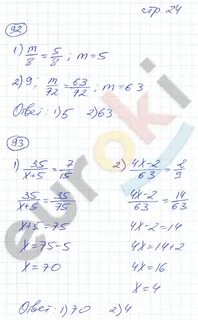 стр. 24
92
1) m/8 = 5/8 ; m = 5
2) 9; m/72 = 63/72 ; m = 63
Ответ: 1) 5 2) 63
93
1) 35/(x+5) = 7/15 2) (4x-2)/63 = 2/9
35/(x+5) = 35/75 (4x-2)/63 = 14/63
x+5 = 75 4x-2 = 14
x = 75-5 4x = 14+2
x = 70 4x = 16
x = 4
Ответ: 1) 70 2) 4
euroki